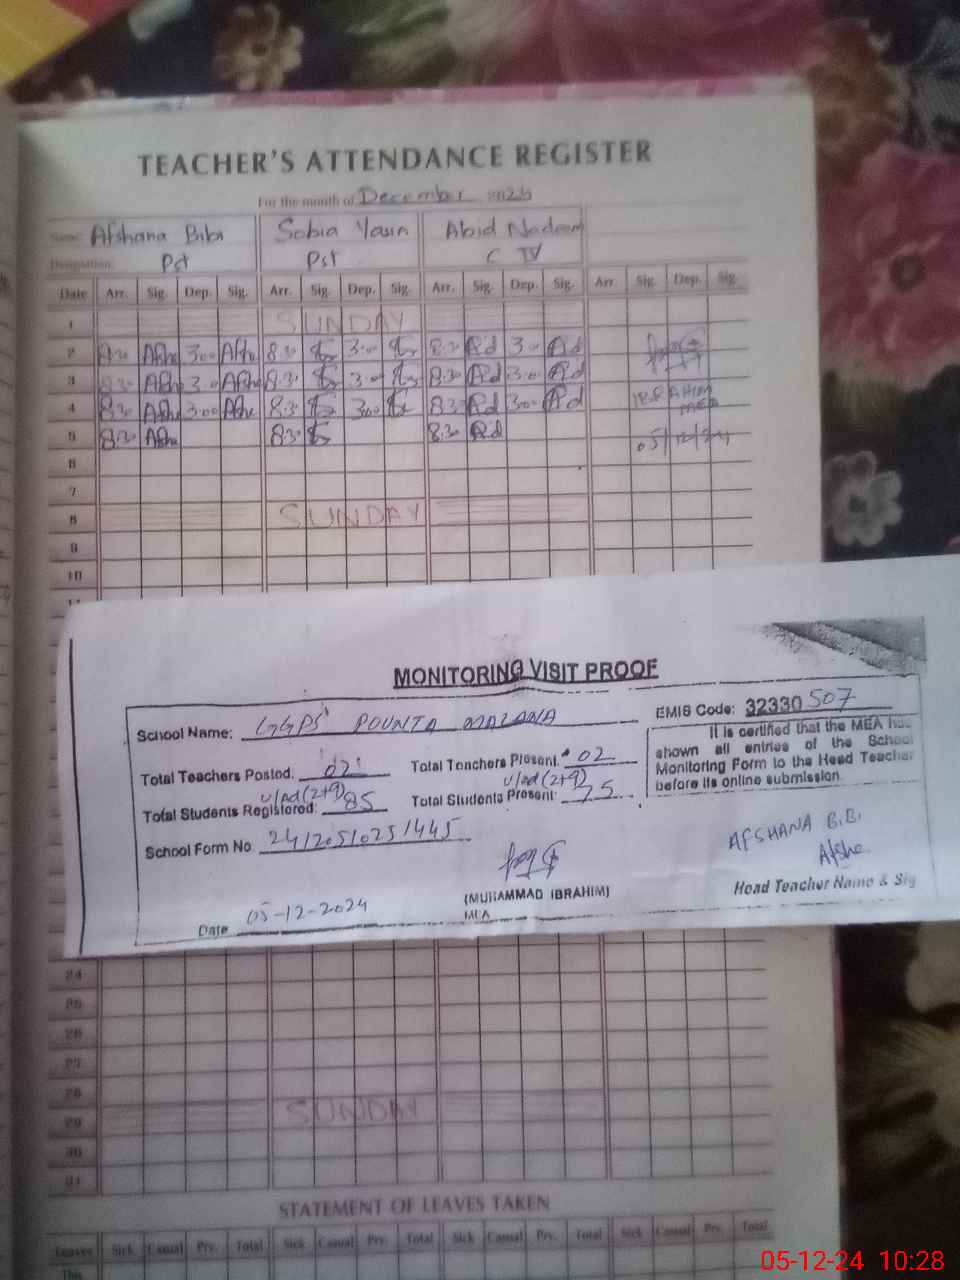 TEACHER'S ATTENDANCE REGISTER
For the month of December 2024
Name: Afshana Bibi Sobia Yasin Abid Nadeem
Designation: Pst Pst
Date Arr. Sig. Dep. Sig. Arr. Sig. Dep. Sig. Arr. Sig. Dep. Sig. Arr. Sig. Dep. Sig.
1 SUNDAY
2 8:30 Afsha 3:00 Afsha 8:30 3:00 8:30 Ad 3:00 Ad
3 8:30 Afsha 3:00 Afsha 8:30 3:00 8:30 Ad 3:00 Ad
4 8:30 Afsha 3:00 Afsha 8:30 3:00 8:30 Ad 3:00 Ad IBRAHIM MEA
5 8:30 Afsha 8:30 8:30 Ad 05/12/24
6
7
8 SUNDAY
9
10
11
MONITORING VISIT PROOF
School Name: GGPS POUNTA MALANA EMIS Code: 32330507
It is certified that the MEA has
shown all entries of the School
Monitoring Form to the Head Teacher
before its online submission.
Total Teachers Posted: 02 Total Teachers Present: 02
u/Ad (2+9) u/Ad (2+9)
Total Students Registered: 85 Total Students Present: 75
School Form No. 24120510251445
AFSHANA BIBI
Afsha
(MUHAMMAD IBRAHIM)
MEA
Head Teacher Name & Sig
Date 05-12-2024
24
25
26
27
28
29 SUNDAY
30
31
STATEMENT OF LEAVES TAKEN
Leaves Sick Casual Prv. Total Sick Casual Prv. Total Sick Casual Prv. Total Sick Casual Prv. Total
This
05-12-24 10:28